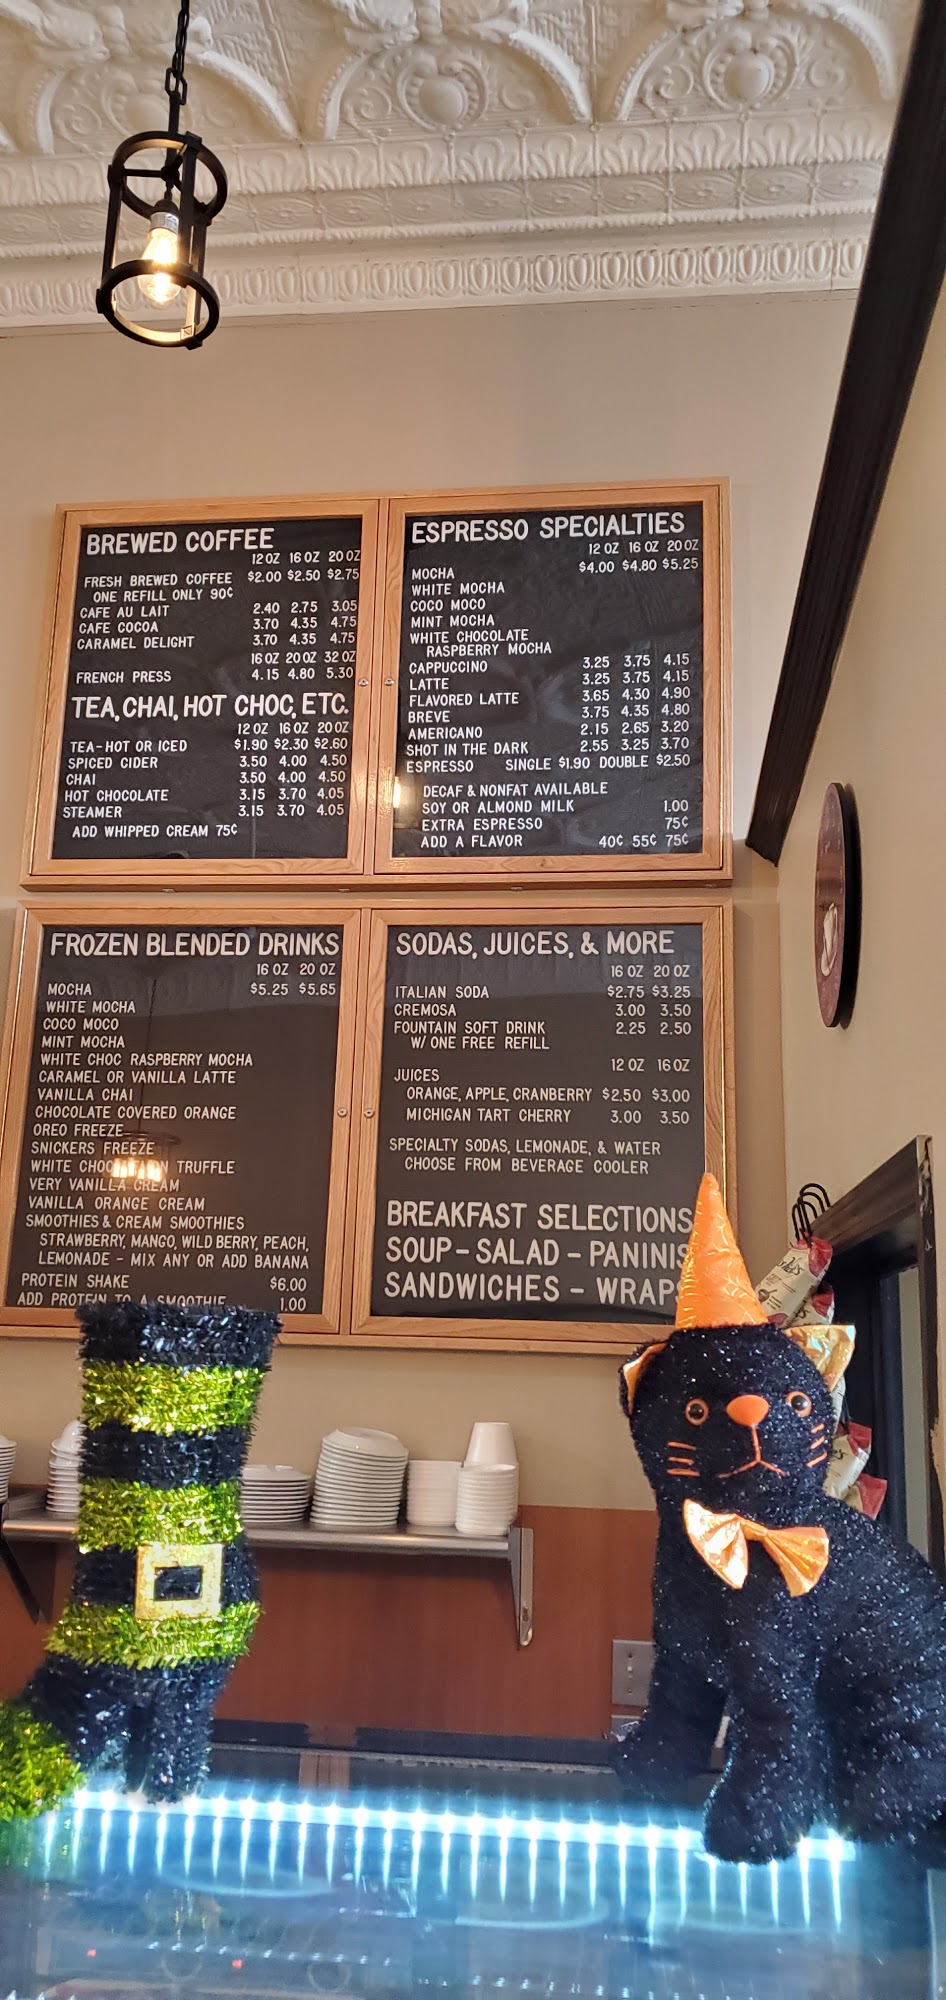 BREWED COFFEE
12 OZ 16 OZ 20 OZ
FRESH BREWED COFFEE $2.00 $2.50 $2.75
ONE REFILL ONLY 90¢
CAFE AU LAIT 2.40 2.75 3.05
CAFE COCOA 3.70 4.35 4.75
CARAMEL DELIGHT 3.70 4.35 4.75
16 OZ 20 OZ 32 OZ
FRENCH PRESS 4.15 4.80 5.30
TEA, CHAI, HOT CHOC, ETC.
12 OZ 16 OZ 20 OZ
TEA-HOT OR ICED $1.90 $2.30 $2.60
SPICED CIDER 3.50 4.00 4.50
CHAI 3.50 4.00 4.50
HOT CHOCOLATE 3.15 3.70 4.05
STEAMER 3.15 3.70 4.05
ADD WHIPPED CREAM 75¢
ESPRESSO SPECIALTIES
12 OZ 16 OZ 20 OZ
MOCHA $4.00 $4.80 $5.25
WHITE MOCHA
COCO MOCO
MINT MOCHA
WHITE CHOCOLATE
RASPBERRY MOCHA
CAPPUCCINO 3.25 3.75 4.15
LATTE 3.25 3.75 4.15
FLAVORED LATTE 3.65 4.30 4.90
BREVE 3.75 4.35 4.80
AMERICANO 2.15 2.65 3.20
SHOT IN THE DARK 2.55 3.25 3.70
ESPRESSO SINGLE $1.90 DOUBLE $2.50
DECAF & NONFAT AVAILABLE
SOY OR ALMOND MILK 1.00
EXTRA ESPRESSO 75¢
ADD A FLAVOR 40¢ 55¢ 75¢
FROZEN BLENDED DRINKS
16 OZ 20 OZ
MOCHA $5.25 $5.65
WHITE MOCHA
COCO MOCO
MINT MOCHA
WHITE CHOC RASPBERRY MOCHA
CARAMEL OR VANILLA LATTE
VANILLA CHAI
CHOCOLATE COVERED ORANGE
OREO FREEZE
SNICKERS FREEZE
WHITE TRUFFLE
VERY VANILLA CREAM
VANILLA ORANGE CREAM
SMOOTHIES & CREAM SMOOTHIES
STRAWBERRY, MANGO, WILD BERRY, PEACH,
LEMONADE - MIX ANY OR ADD BANANA
PROTEIN SHAKE $6.00
ADD PROTEIN TO A SMOOTHIE 1.00
SODAS, JUICES, & MORE
16 OZ 20 OZ
ITALIAN SODA $2.75 $3.25
CREMOSA 3.00 3.50
FOUNTAIN SOFT DRINK 2.25 2.50
W/ ONE FREE REFILL
12 OZ 16 OZ
JUICES
ORANGE, APPLE, CRANBERRY $2.50 $3.00
MICHIGAN TART CHERRY 3.00 3.50
SPECIALTY SODAS, LEMONADE, & WATER
CHOOSE FROM BEVERAGE COOLER
BREAKFAST SELECTIONS
SOUP - SALAD - PANINIS
SANDWICHES - WRAPS